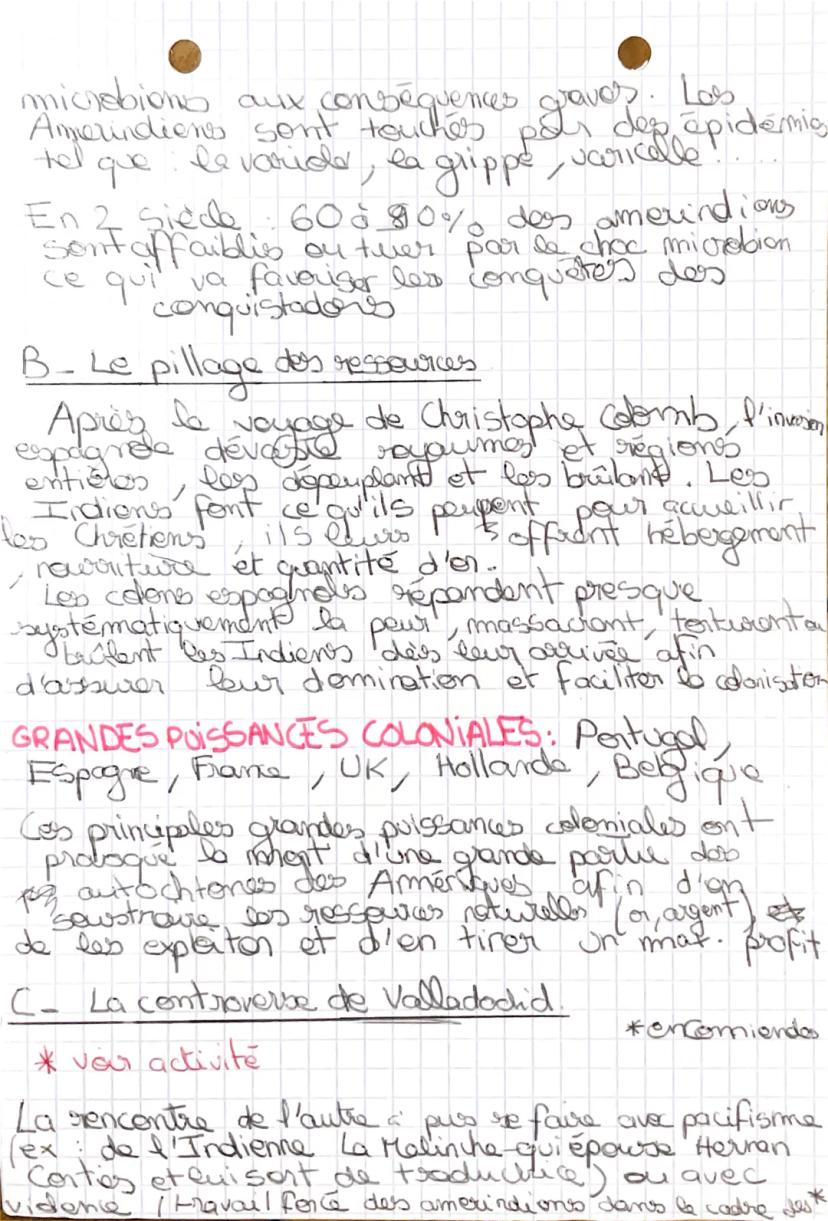 microbiens aux conséquences graves. Les
Amerindiens sont touchés par des épidémies
tel que : la variole, la grippe, varicelle.....
En 2 siècle : 60 à 80% des amerindiens
sont affaiblis ou tuer par le choc microbien
ce qui va favoriser les conquêtes des
conquistadors
B- Le pillage des ressources
Après le voyage de Christophe Colomb, l'invasion
espagnole dévaste royaumes et régions
entières, les dépeuplant et les brûlant. Les
Indiens font ce qu'ils peuvent pour accueillir
les Chrétiens, ils leurs offrent hébergement
, nourriture et quantité d'or.
Les colons espagnols répandent presque
systématiquement la peur, massacrant, torturant ou
brûlant les Indiens dès leur arrivée afin
d'assurer leur domination et faciliter la colonisation
GRANDES PUISSANCES COLONIALES: Portugal,
Espagne, France, UK, Hollande, Belgique
Ces principales grandes puissances coloniales ont
provoqué la mort d'une grande partie des
autochtones des Amériques afin d'en
soustraire les ressources naturelles (or, argent)
de les exploiter et d'en tirer un max. profit
C- La controverse de Valladodid.
*encomiendas
* voir activité
La rencontre de l'autre à pus se faire avec pacifisme
(ex : de l'Indienne La Malinche qui épouse Hernan
Cortès et lui sert de traductrice) ou avec
violence (travail forcé des amerindiens dans le cadre des*